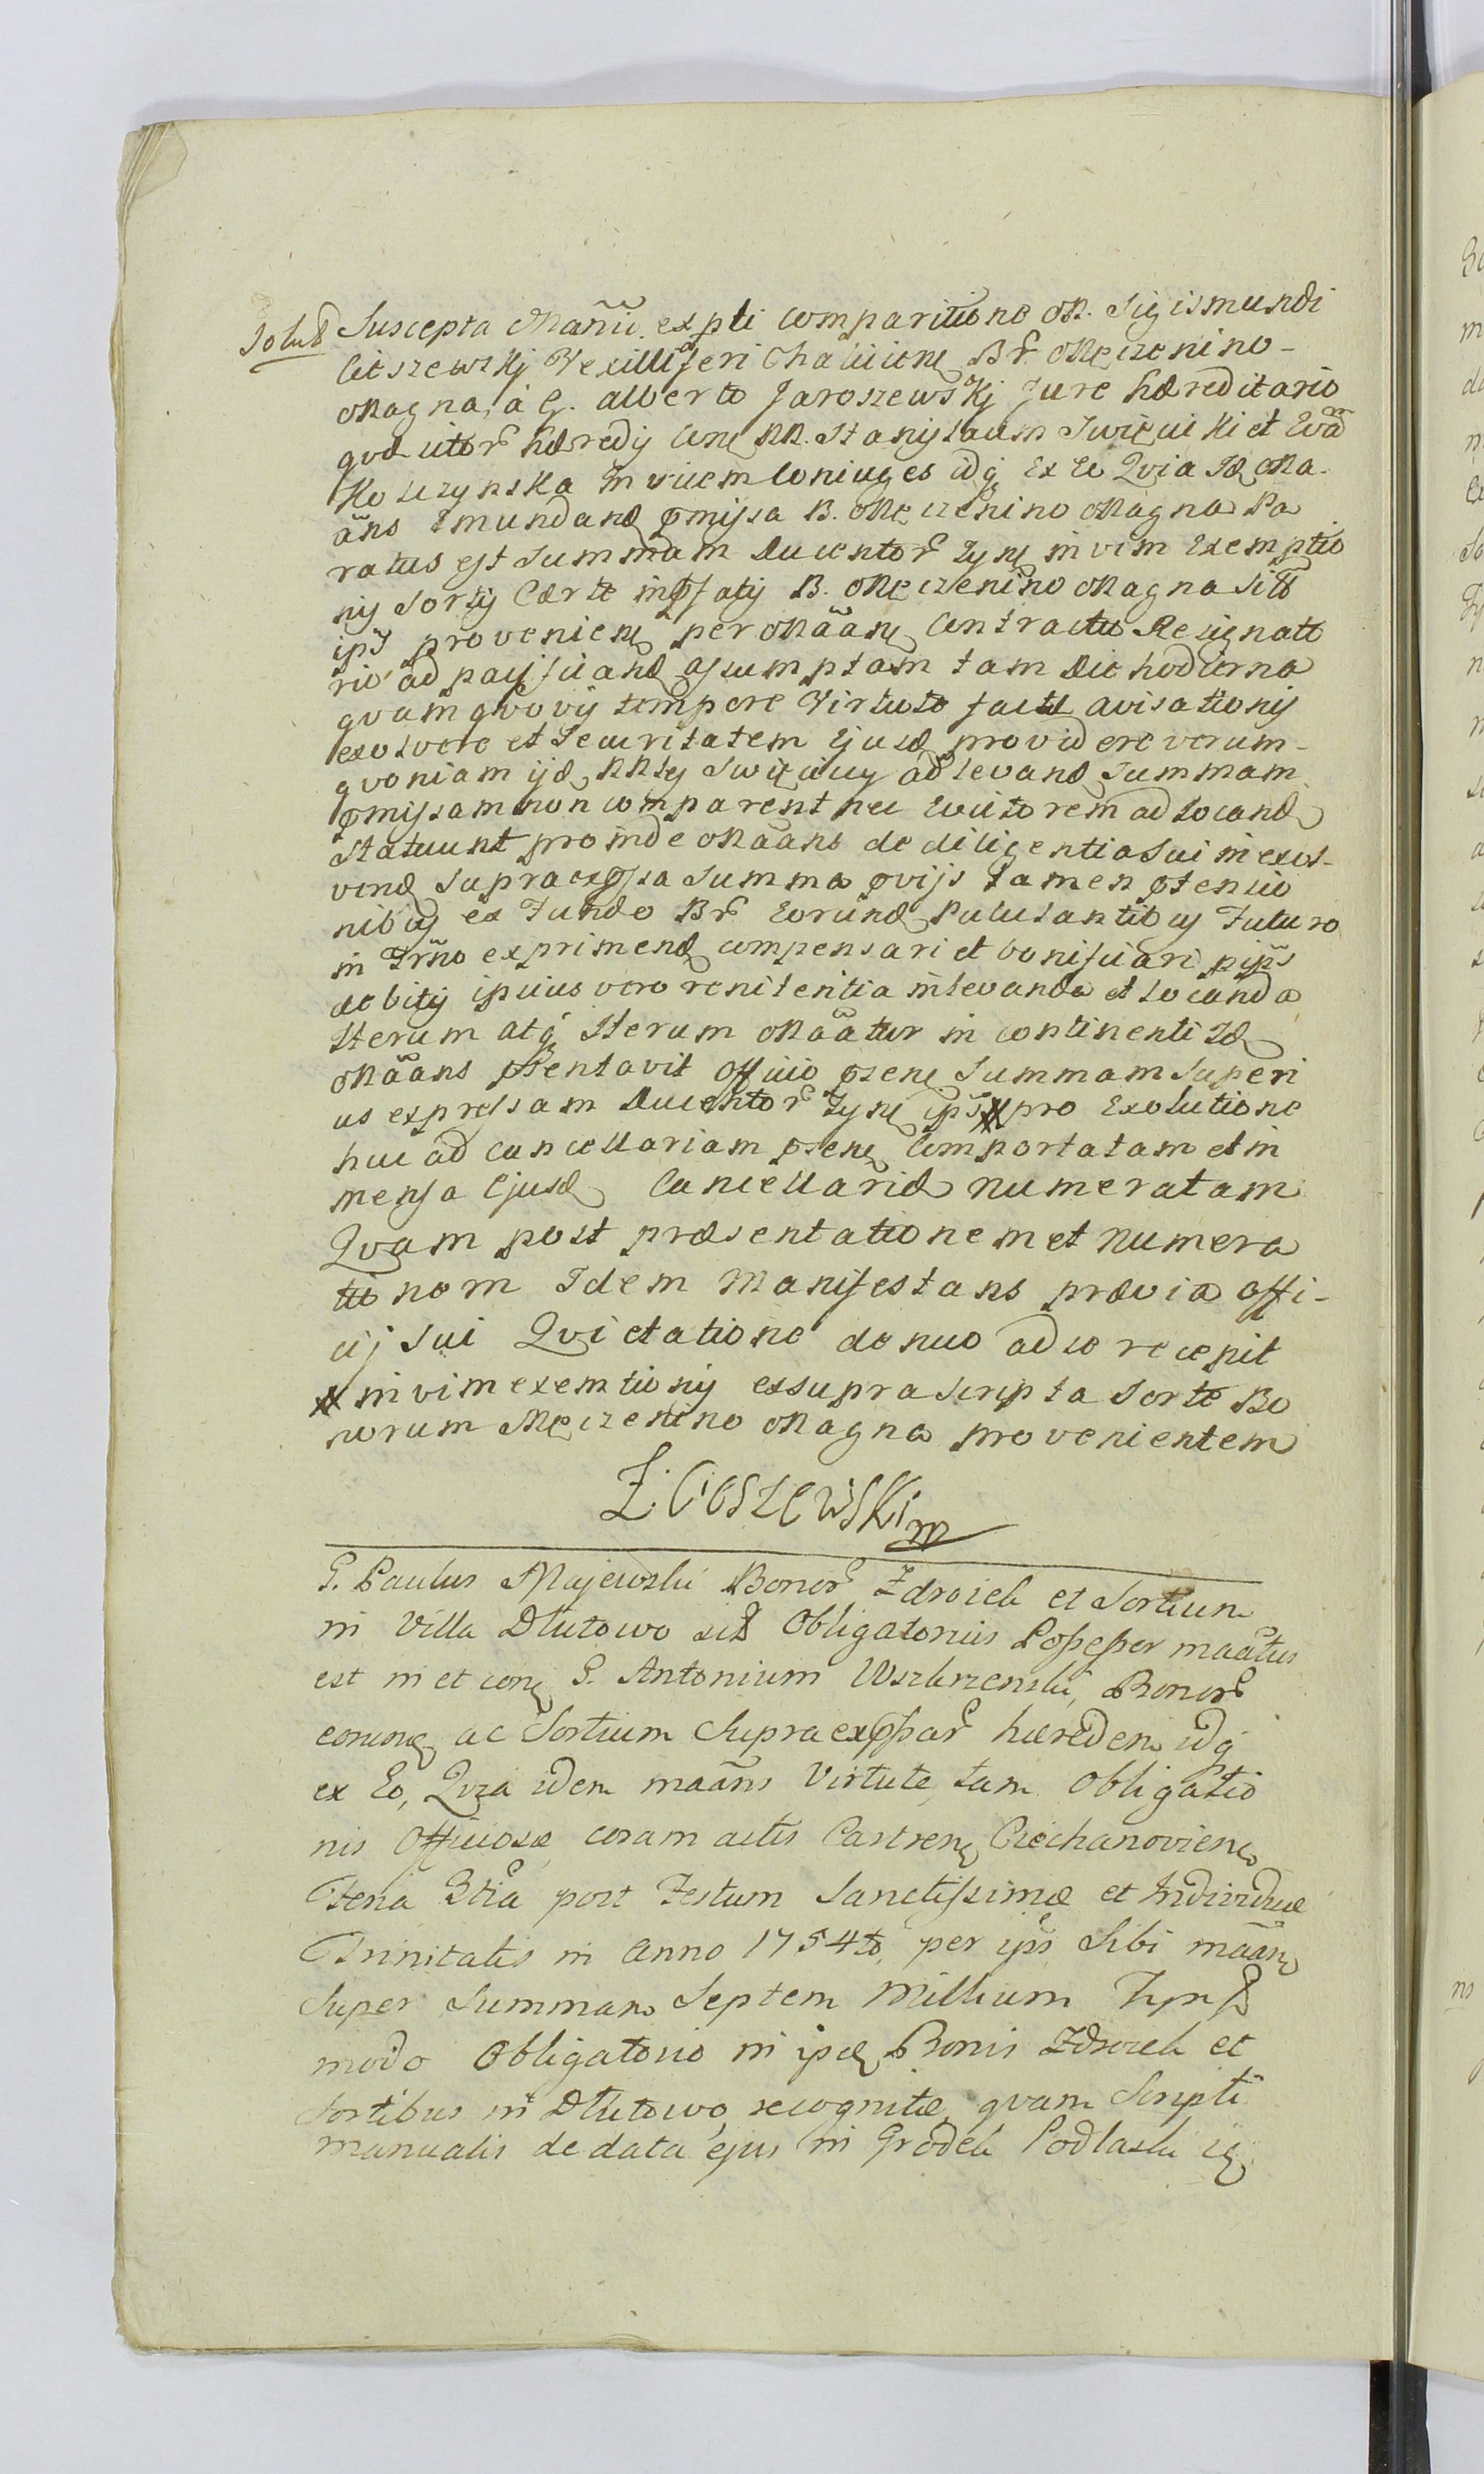 Solut Suscepta Mañii expti comparitione M. Sigismundi
Cieszewskÿ Vexilliferi Chalicien Br Męczenino-
Magna, á G. Alberto Jaroszewskj Jure hæreditario
qvæsitor hæredis Con NN. Stanislaum Swięcicki et Evã
Kosczynska Invicem Coniuges idq Ex Eo Qvia Id Ma-
ãns Emundand pmissa B. Męczenino Magna Pa
ratus est Summam Ducentor Tyn in vim Exemptio
nis Sortis Certe in pfatis B. Męczenino Magna Sitt
ips provenien per Mããn Contractu Resignato
rio ad pacificand assumptam tam Die hodierna
qvam qvovis tempore Virtute factæ avisationis
exolvere et Securitatem Ejusd providere verum-
qvoniam ijd NNles Swięciccy ad levand Summam
pmissam non comparent nec Evictorem ad locand
Statuunt proinde Mããns de diligentia Sui in exol-
vend supraexpssa Summa pvijs tamen ptensio
nibus ex Fundo Br Eorund Pululantibus Futuro
in Trno exprimend compensari et bonificari pips
debitis ipsius vero renitentia in levanda et locanda
Iterum atq Iterum Mããtur in continenti Id
Mããns psentavit Officio psen Summam Superi
us expressam Ducentor Tyn ips X pro Exolutione
huc ad cancellariam psen Comportatam et in
mensa Ejusd Cancellariæ numeratam
Qvam post præsentationem et numera
tionem Idem Manifestans prævia offi-
cij sui Qvietatione denuo ad se recepit
X in vim exemtionis ex supra scripta Sorte Bo
norum Męczenino Magna provenientem
Z. Cieszewski m
G. Paulus Majewski Bonor Zdroiek et Sortium
in Villa Dłutowo sitt Obligatorius Possessor maatus
est in et con G. Antonium Wszkrzenski, Bonor
eorund ac Sortium Supra expssar hæredem idq
ex Eo, Qvia idem maãns Virtute tam Obligatio
nis Officiosæ coram actis Castren Ciechanovien
Feria 3tia post Festum Sanctissimæ et Individuæ
Trinitatis in Anno 1754to per ips Sibi mããn
Super Summam Septem Millium Tynf
modo Obligatorio in ipsd Bonis Zdroiek et
Sortibus in Dłutowo recognitæ qvam Scripti
manualis de data ejus in Grodek Podlaski